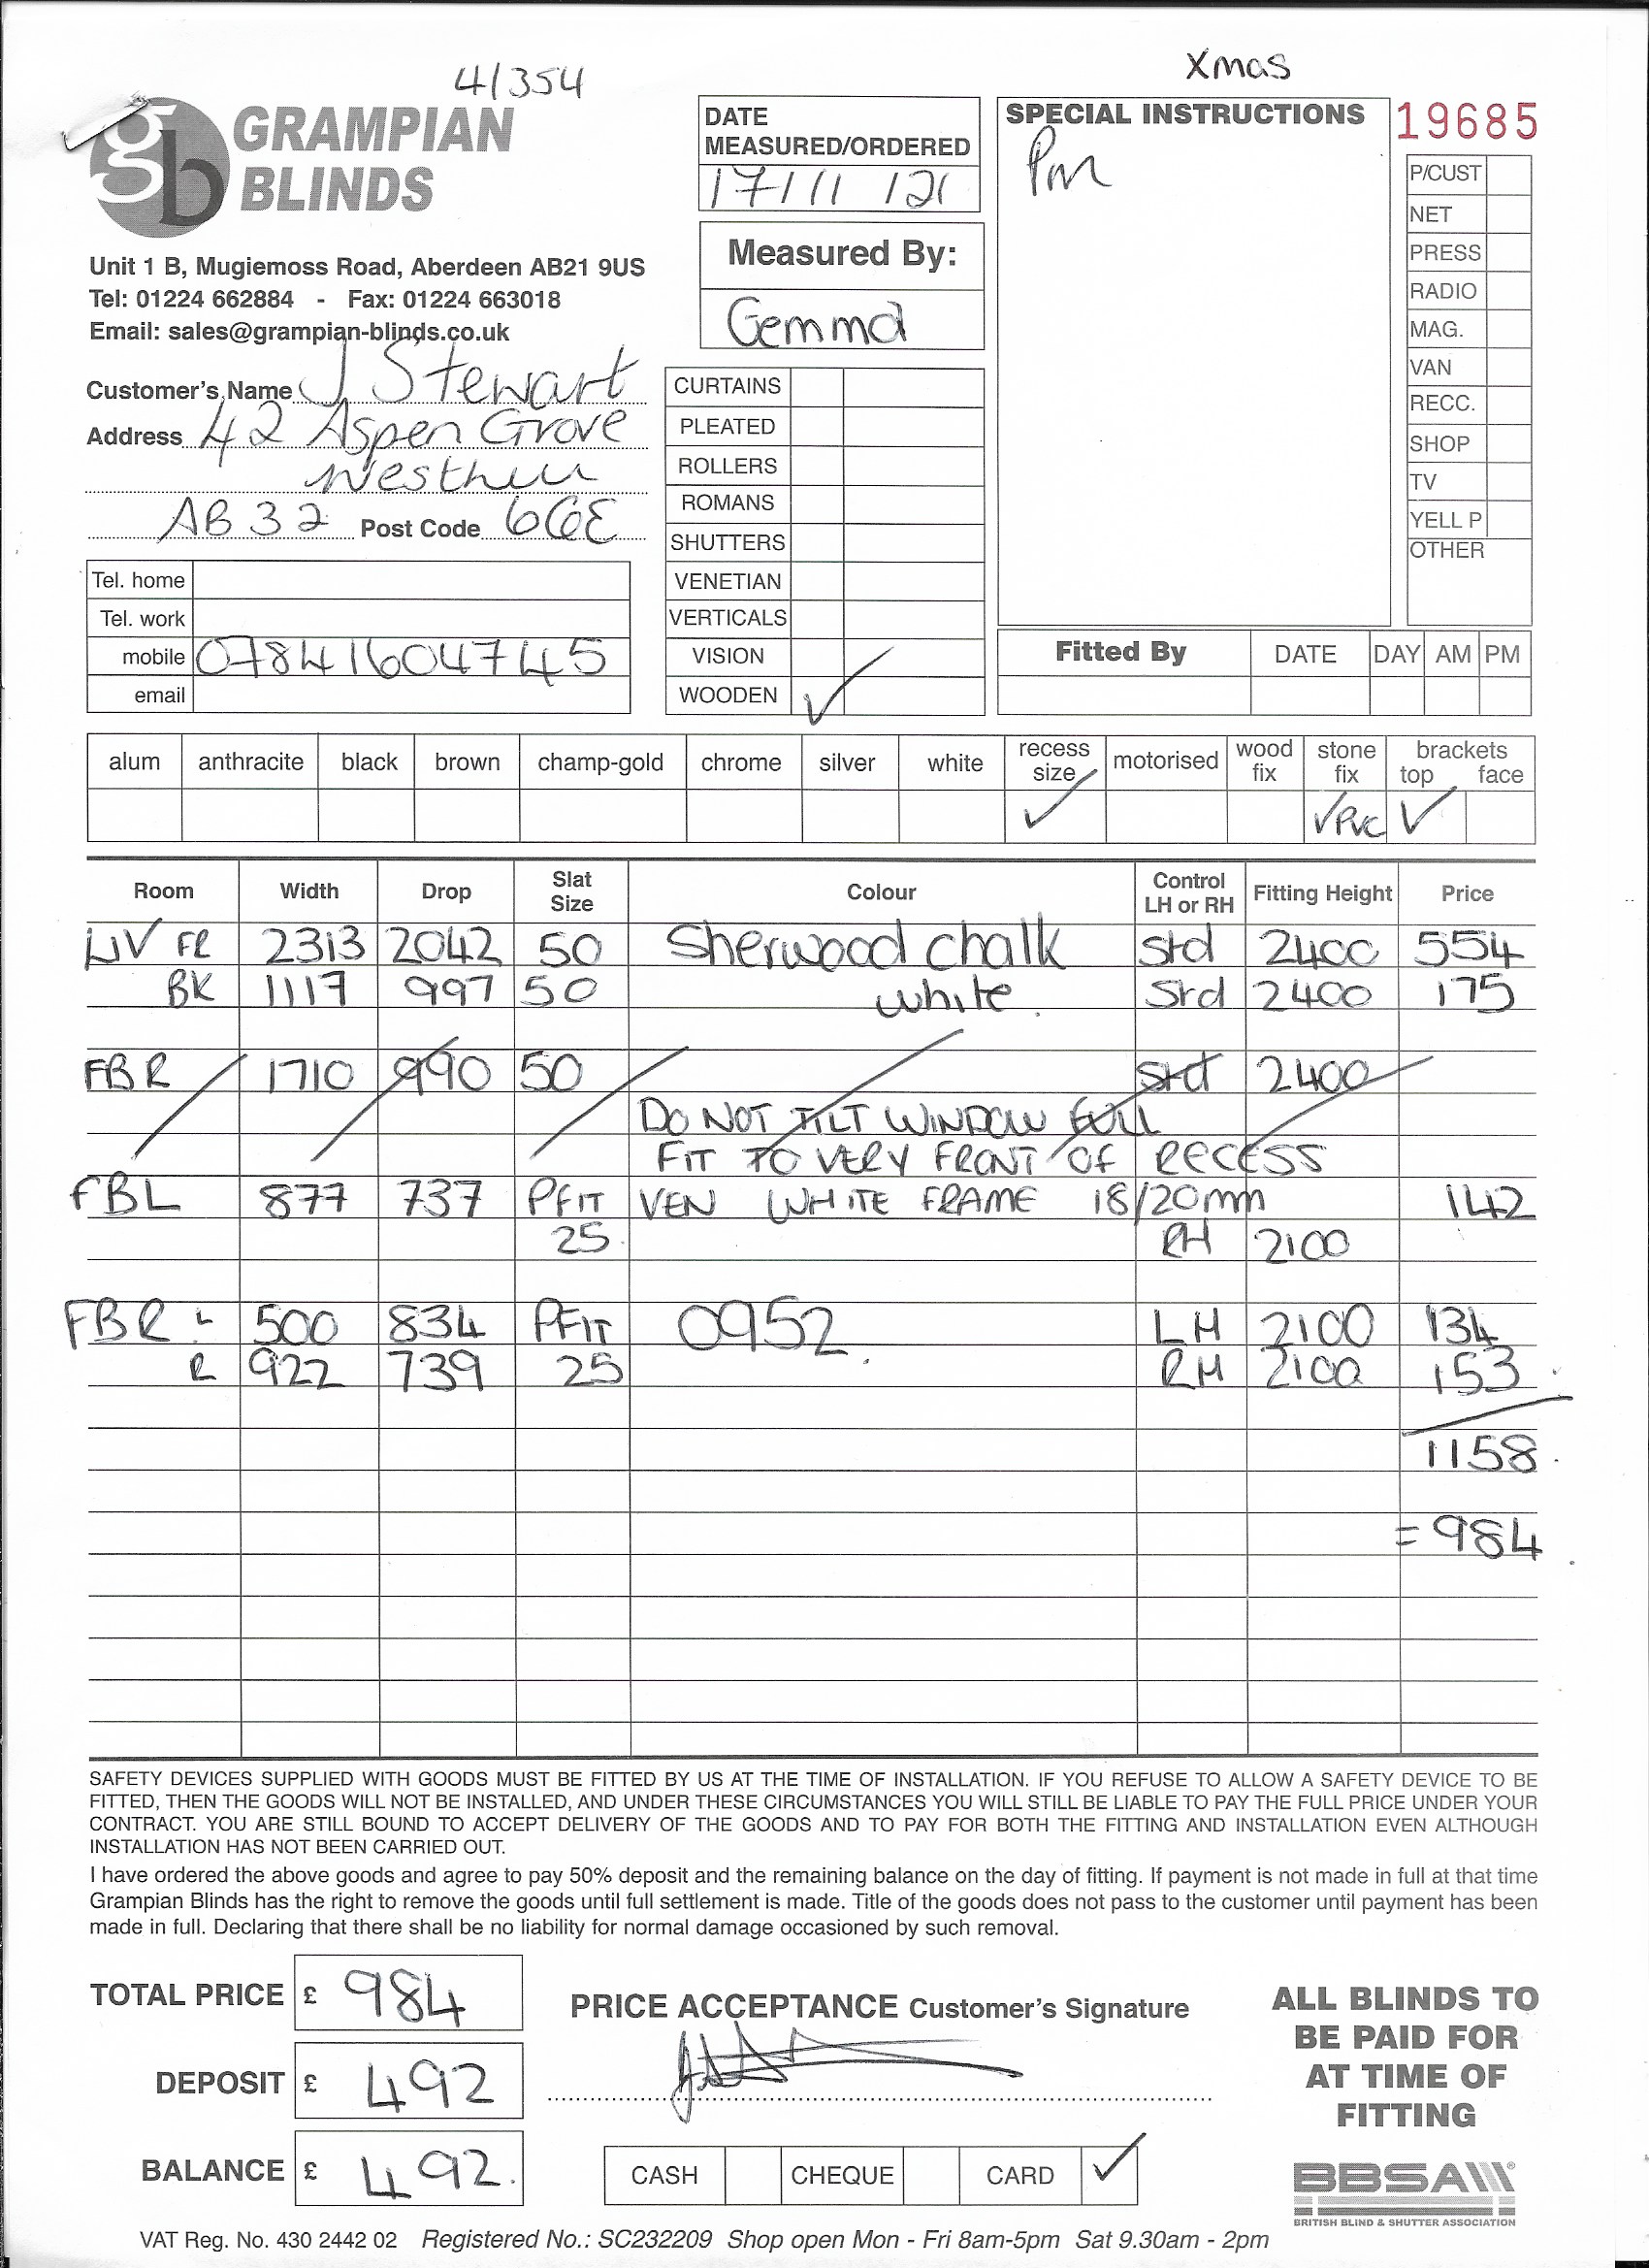 Xmas
41354
GRAMPIAN
BLINDS
Unit 1 B, Mugiemoss Road, Aberdeen AB21 9US
Tel: 01224 662884 - Fax: 01224 663018
Email: sales@grampian-blinds.co.uk
Customer's Name J Stewart
Address 42 Aspen Grove
Westhill
AB32 Post Code 6GE
Tel. home
Tel. work
mobile 07841604745
email
DATE
MEASURED/ORDERED
17/11/21
Measured By:
Gemma
CURTAINS
PLEATED
ROLLERS
ROMANS
SHUTTERS
VENETIAN
VERTICALS
VISION
WOODEN ✓
SPECIAL INSTRUCTIONS
Pm
19685
P/CUST
NET
PRESS
RADIO
MAG.
VAN
RECC.
SHOP
TV
YELL P
OTHER
Fitted By DATE DAY AM PM
alum anthracite black brown champ-gold chrome silver white recess size motorised wood fix stone fix brackets top face
✓ ✓ PVC ✓
Room Width Drop Slat Size Colour Control LH or RH Fitting Height Price
LIV FR 2313 2042 50 Sherwood chalk std 2400 554
BK 1117 997 50 white. std 2400 175
FBR 1710 990 50 std 2400
DO NOT TILT WINDOW FULL
FIT TO VERY FRONT OF RECESS
FBL 877 737 PFIT VEN WHITE FRAME 18/20mm 142
25 RH 2100
FBR L 500 834 PFIT 0952. LH 2100 134
R 922 739 25 RH 2100 153
1158
= 984
SAFETY DEVICES SUPPLIED WITH GOODS MUST BE FITTED BY US AT THE TIME OF INSTALLATION. IF YOU REFUSE TO ALLOW A SAFETY DEVICE TO BE
FITTED, THEN THE GOODS WILL NOT BE INSTALLED, AND UNDER THESE CIRCUMSTANCES YOU WILL STILL BE LIABLE TO PAY THE FULL PRICE UNDER YOUR
CONTRACT. YOU ARE STILL BOUND TO ACCEPT DELIVERY OF THE GOODS AND TO PAY FOR BOTH THE FITTING AND INSTALLATION EVEN ALTHOUGH
INSTALLATION HAS NOT BEEN CARRIED OUT.
I have ordered the above goods and agree to pay 50% deposit and the remaining balance on the day of fitting. If payment is not made in full at that time
Grampian Blinds has the right to remove the goods until full settlement is made. Title of the goods does not pass to the customer until payment has been
made in full. Declaring that there shall be no liability for normal damage occasioned by such removal.
TOTAL PRICE £ 984
DEPOSIT £ 492
BALANCE £ 492.
PRICE ACCEPTANCE Customer's Signature
CASH CHEQUE CARD ✓
ALL BLINDS TO
BE PAID FOR
AT TIME OF
FITTING
BBSA
BRITISH BLIND & SHUTTER ASSOCIATION
VAT Reg. No. 430 2442 02 Registered No.: SC232209 Shop open Mon - Fri 8am-5pm Sat 9.30am - 2pm